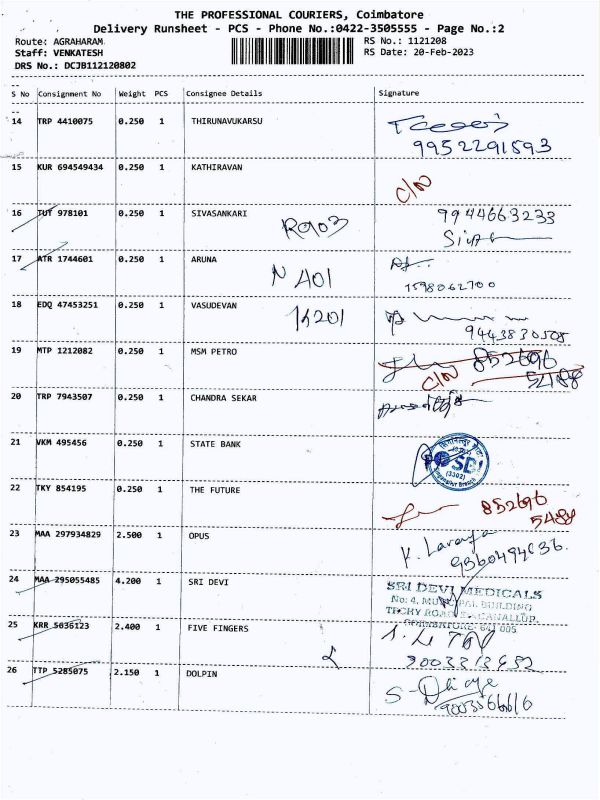 THE PROFESSIONAL COURIERS, Coimbatore
Delivery Runsheet - PCS - Phone No.:0422-3505555 - Page No.:2
Route: AGRAHARAM RS No.: 1121208
Staff: VENKATESH RS Date: 20-Feb-2023
DRS No.: DCJB112120802
S No Consignment No Weight PCS Consignee Details Signature
14 TRP 4410075 0.250 1 THIRUNAVUKARSU
9952291593
15 KUR 694549434 0.250 1 KATHIRAVAN
C/N
16 TUT 978101 0.250 1 SIVASANKARI 9944663233
17 ATR 1744601 0.250 1 ARUNA
N A01
18 EDQ 47453251 0.250 1 VASUDEVAN
19 MTP 1212082 0.250 1 MSM PETRO 852696
C/N 5488
20 TRP 7943507 0.250 1 CHANDRA SEKAR
21 VKM 495456 0.250 1 STATE BANK
SBI
22 TKY 854195 0.250 1 THE FUTURE 852696
5488
23 MAA 297934829 2.500 1 OPUS K. Lavanya
24 MAA 295055485 4.200 1 SRI DEVI SRI DEVI MEDICALS
No: 4, BUILDING
TECHY ROAD
COIMBATORE- 641 005
25 KRR 5636123 2.400 1 FIVE FINGERS
26 TTP 5285075 2.150 1 DOLPIN